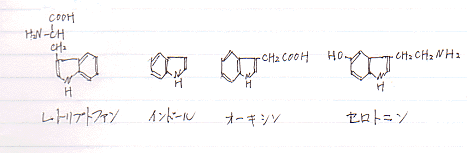 COOH
H₂N-CH
CH₂
N
H
L-トリプトファン
N
H
インドール
CH₂COOH
N
H
オーキシン
HO
CH₂CH₂NH₂
N
H
セロトニン